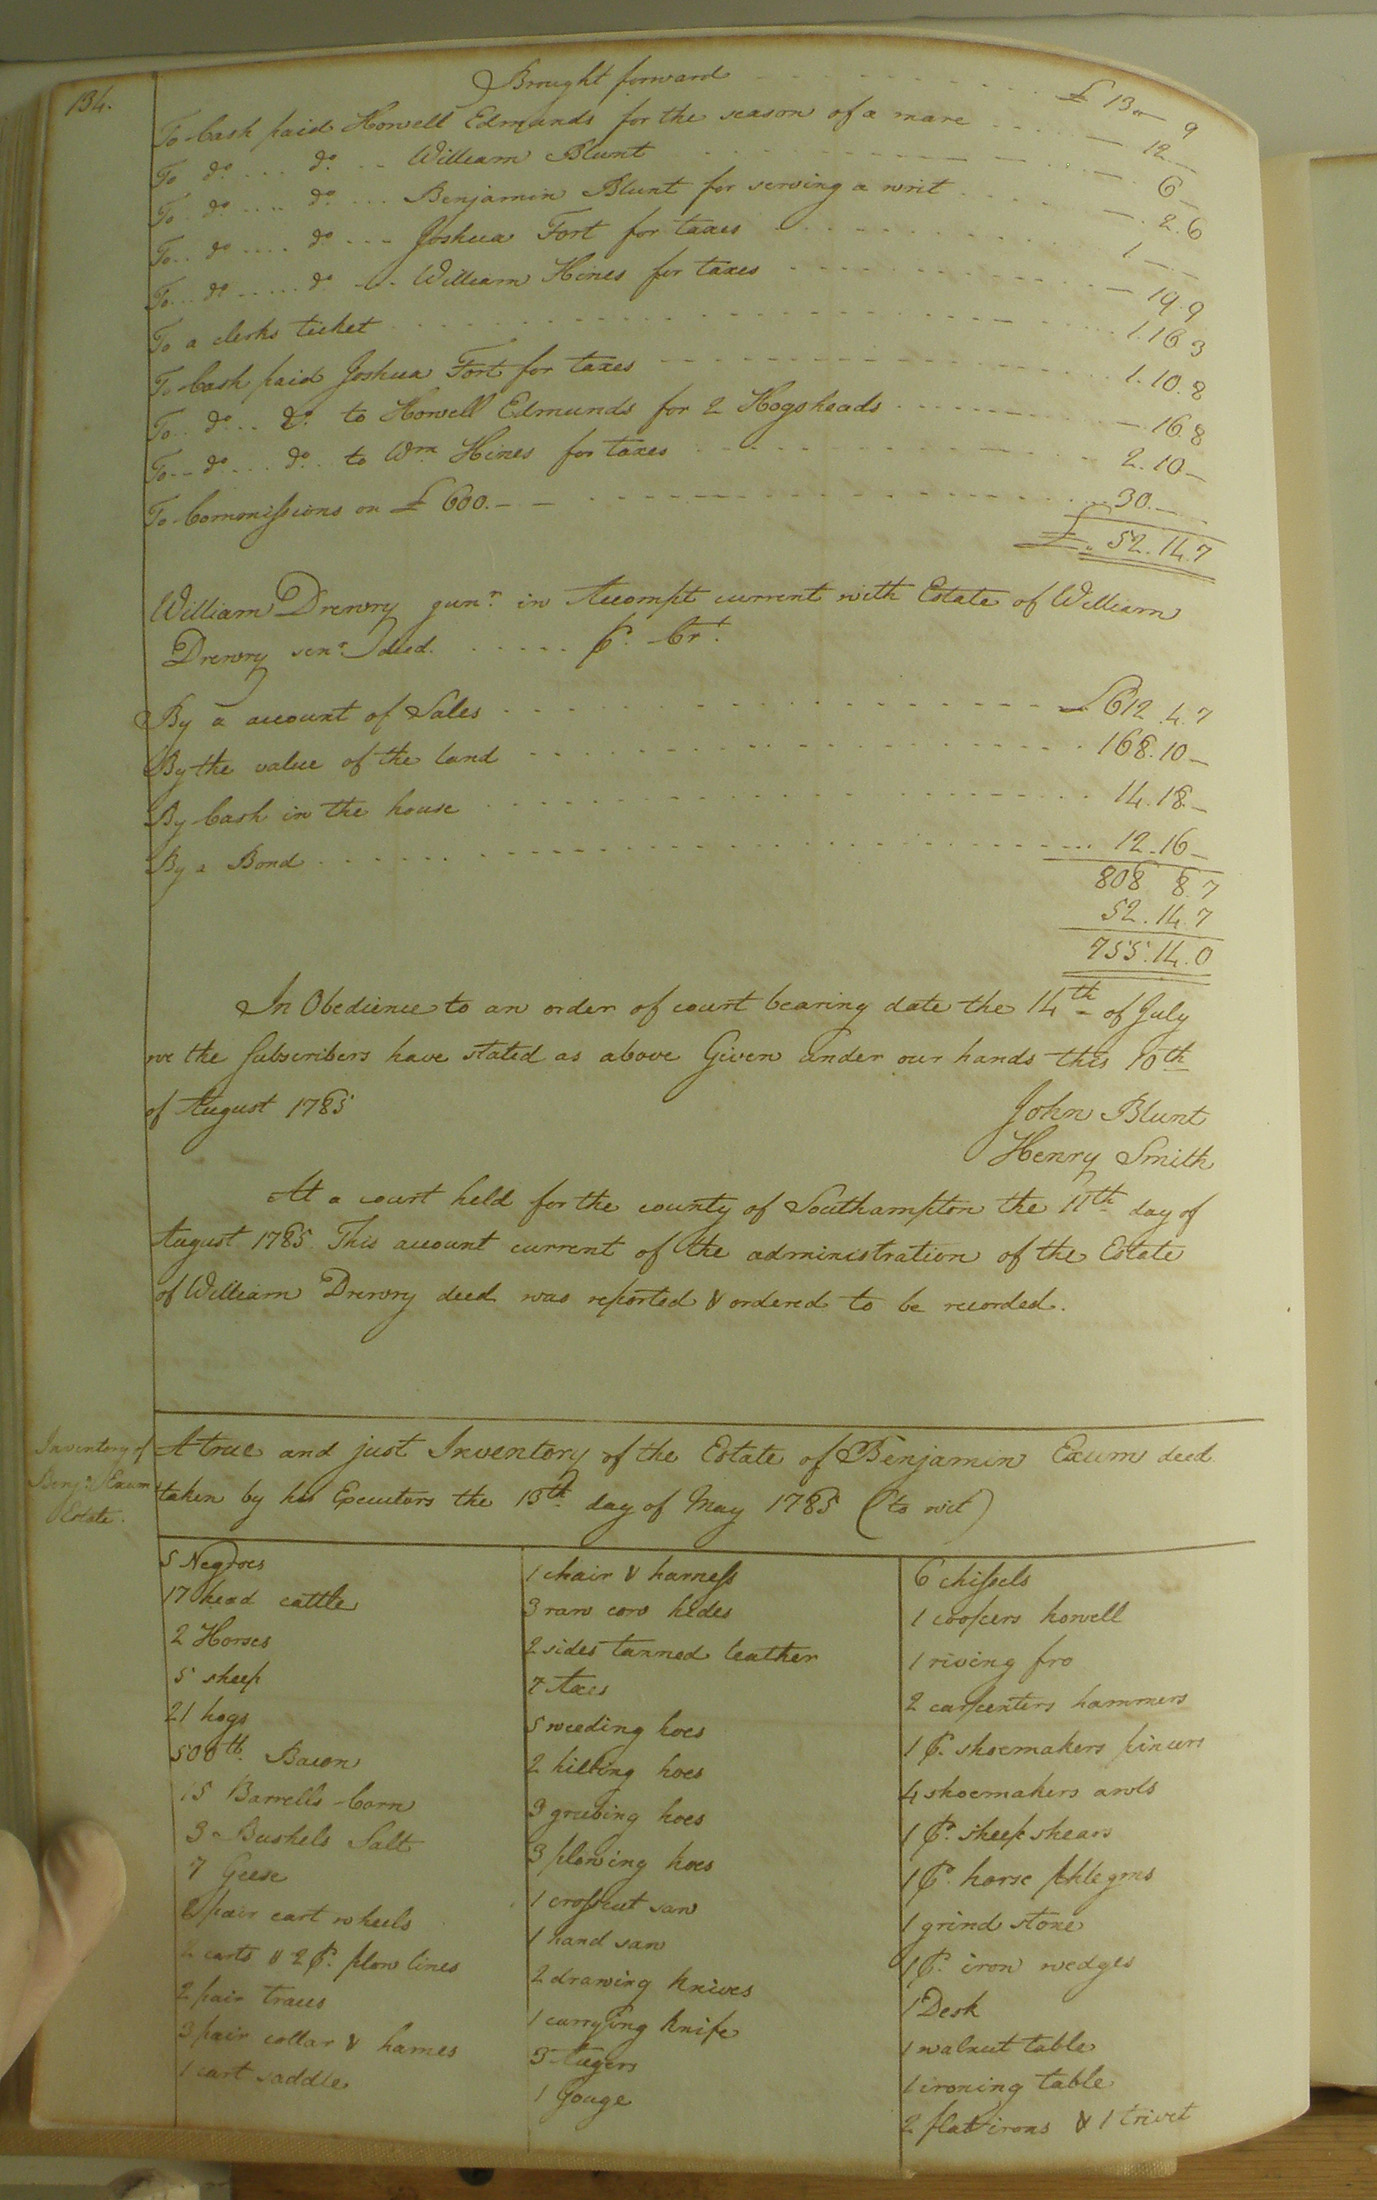 134.
Brought forward - - - - £ 13 - 9
To Cash paid Howell Edmunds for the season of a mare - - - - 12 -
To do. - - - do. - - William Blunt - - - - 6 -
To do. - - - do. - - - Benjamin Blunt for serving a writ - - - 2.6
To.. do. - - - do. - - - Joshua Fort for taxes - - - - 1 - -
To... do. - - - do. - - - William Hines for taxes - - - - 19.9
To a clerks ticket - - - - 1.16 3
To Cash paid Joshua Fort for taxes - - - - 1.10.8
To.. do... do. to Howell Edmunds for 2 Hogsheads - - - - 16.8
To - - do. - - - do. to Wm. Hines for taxes - - - - 2.10 -
To Commissions on £ 600. - - - - - - 30. - -
£. 52.14.7
William Drewry junr. in Accompt current with Estate of William
Drewry senr. decd. - - - - - Pr. Crt.
By a account of Sales - - - - £612.4.7
By the value of the land - - - - 168.10 -
By Cash in the house - - - - 14.18. -
By a Bond - - - - 12.16 -
808 8.7
52.14.7
755.14.0
In Obedience to an order of court bearing date the 14th of July
we the Subscribers have stated as above Given under our hands this 10th
of August 1785
John Blunt
Henry Smith
At a court held for the county of Southampton the 11th day of
August 1785 This account current of the administration of the Estate
of William Drewry decd was reported & ordered to be recorded.
Inventory of
Benjn. Exum
Estate.
A true and just Inventory of the Estate of Benjamin Exum decd
taken by his Executors the 15th day of May 1785 (to wit)
5 Negroes
17 head cattle
2 Horses
5 sheep
21 hogs
500 lb. Bacon
15 Barrells Corn
3 Bushels Salt
7 Geese
2 pair cart wheels
2 carts & 2 Pr. plow lines
2 pair traces
3 pair collar & hames
1 cart saddle
1 chair & harness
3 raw cow hides
2 sides tanned leather
7 Axes
5 weeding hoes
2 hilling hoes
3 grubing hoes
3 plowing hoes
1 crosscut saw
1 hand saw
2 drawing knives
1 currying knife
3 Augers
1 Gouge
6 chissels
1 coopers howell
1 riving fro
2 carpenters hammers
1 Pr. shoemakers pincers
4 shoemakers awls
1 Pr. sheep shears
1 Pr. horse phlegms
1 grind stone
1 Pr. iron wedges
1 Desk
1 walnut table
1 ironing table
2 flat irons & 1 trivet